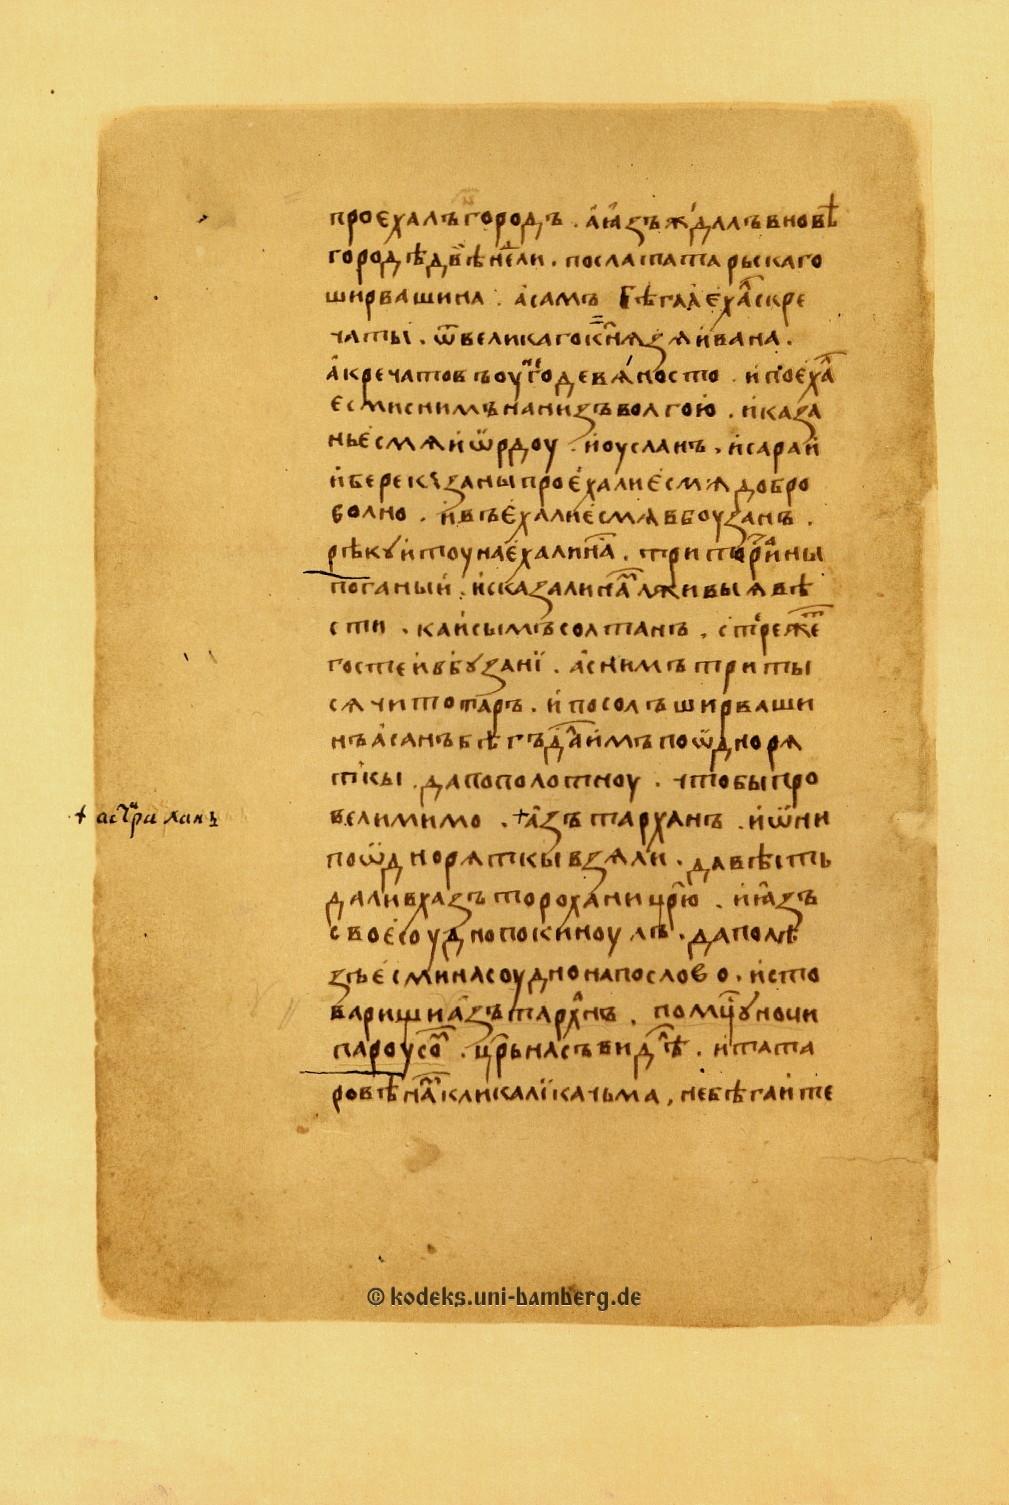 проєхалъ городъ . а ꙗзъ ждалъ в новѣ
городѣ двѣ нєⷣли . посла татарьскаго
ширвашина . асамъ бѣгⷶ а єхаⷧ с кре
чаты . ѿ великаго кнѧзѧ ивана .
а кречатов ъ оу него девѧносто . и поєхаⷧ
єсми с нимъ на низъ волгою . и каза
нь єсмѧ и ѡрдоу . и оусланъ . и сараи
и берекꙋзаны проєхали єсмѧ добро
волно . и въєхали єсмѧ в боузанъ .
рѣкꙋ и тоу наєхали наⷭ . три тотарины
поганыи . и сказали наⷨ лживыѧ вѣ
сти . каисымъ солтанъ . стережеⷮ
гостеи в бꙋзанї . а с нимъ три ты
сѧчи тотаръ . и посолъ ширваши
нъ асанъбѣгъ даⷧ имъ по ѡдноря
ткы . да по полотноу . чтобы про
вели мимо . + азътарханъ . и ѡни
по ѡднорѧткы взѧли . да вѣсть
дали в хазъторохани црю . и ꙗзъ
своє соудно покиноулъ . да полѣ
зъ єсми на соудно на послово . и с то
варищи азътархаⷩнъ . по мцꙋ ночи
пароусоⷨ . црь насъ видѣⷧ . и тата
ровѣ наⷨ кликалї качьма , не бѣгаите
+ астраханъ
© kodeks.uni-bamberg.de